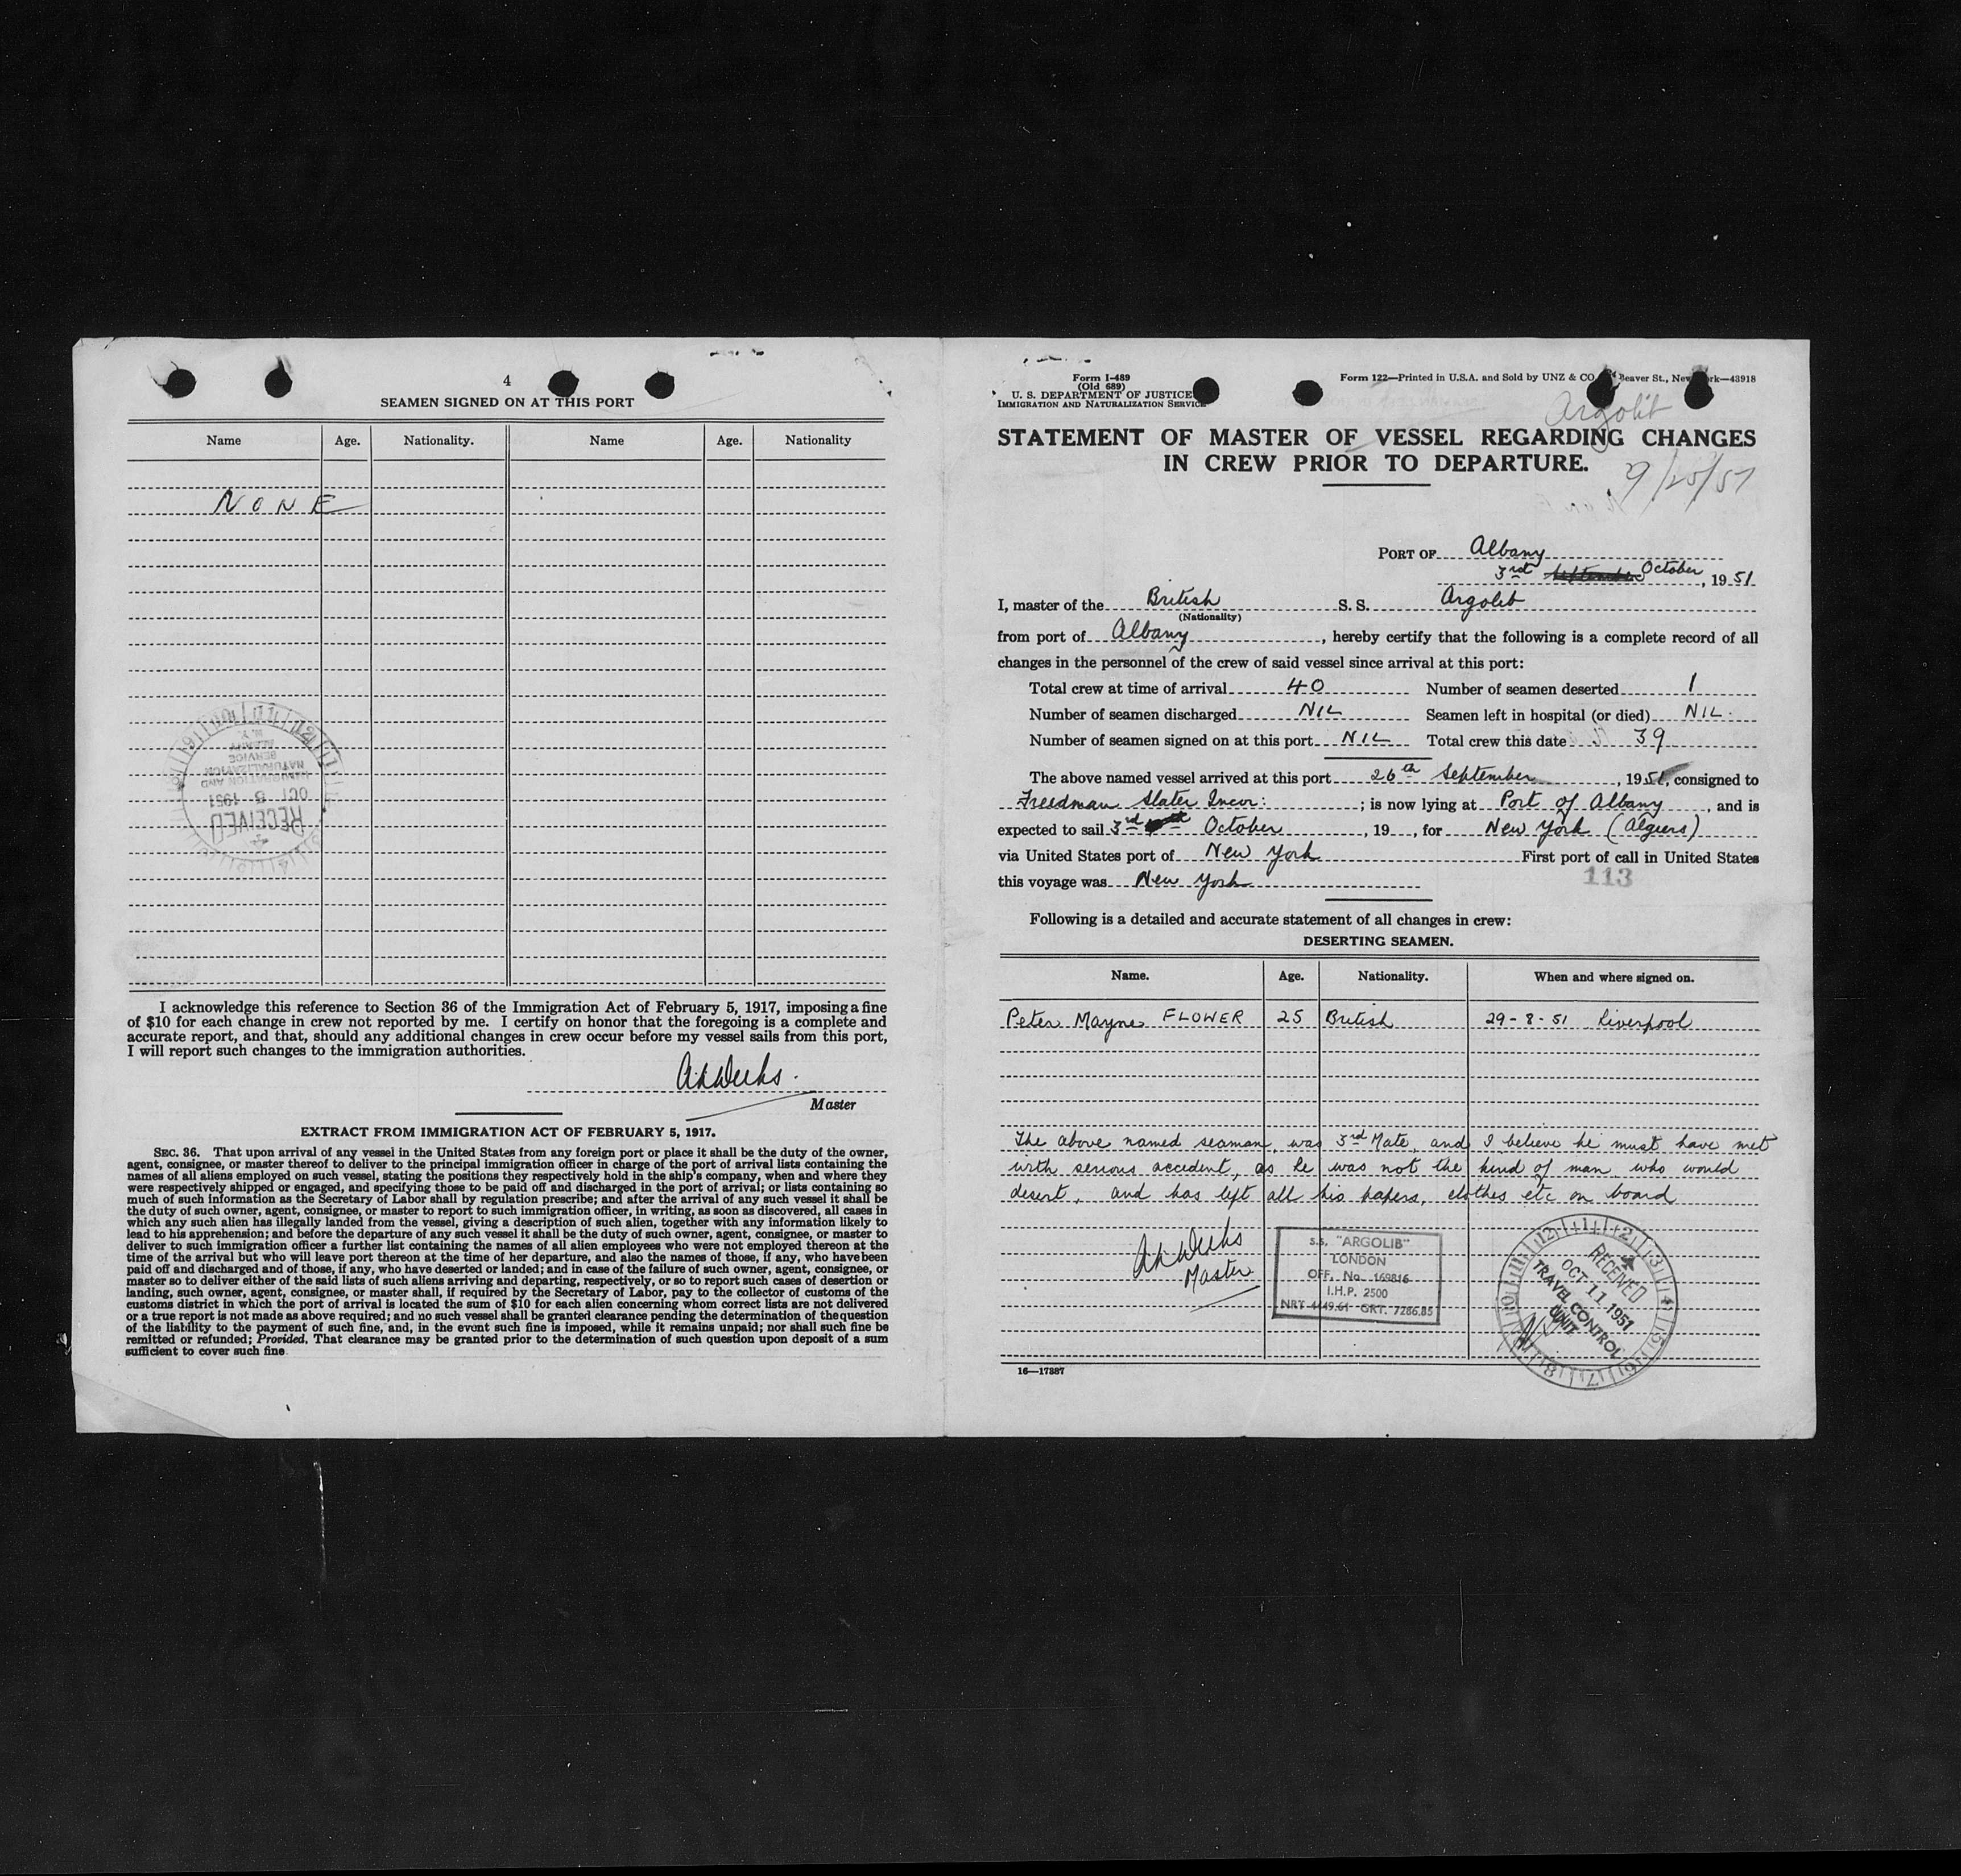 4
SEAMEN SIGNED ON AT THIS PORT
Name Age. Nationality. Name Age. Nationality
NONE
RECEIVED
OCT 3 1951
IMMIGRATION AND
NATURALIZATION
SERVICE
ALBANY
N. Y.
I acknowledge this reference to Section 36 of the Immigration Act of February 5, 1917, imposing a fine
of $10 for each change in crew not reported by me. I certify on honor that the foregoing is a complete and
accurate report, and that, should any additional changes in crew occur before my vessel sails from this port,
I will report such changes to the immigration authorities.
Master
EXTRACT FROM IMMIGRATION ACT OF FEBRUARY 5, 1917.
SEC. 36. That upon arrival of any vessel in the United States from any foreign port or place it shall be the duty of the owner,
agent, consignee, or master thereof to deliver to the principal immigration officer in charge of the port of arrival lists containing the
names of all aliens employed on such vessel, stating the positions they respectively hold in the ship's company, when and where they
were respectively shipped or engaged, and specifying those to be paid off and discharged in the port of arrival; or lists containing so
much of such information as the Secretary of Labor shall by regulation prescribe; and after the arrival of any such vessel it shall be
the duty of such owner, agent, consignee, or master to report to such immigration officer, in writing, as soon as discovered, all cases in
which any such alien has illegally landed from the vessel, giving a description of such alien, together with any information likely to
lead to his apprehension; and before the departure of any such vessel it shall be the duty of such owner, agent, consignee, or master to
deliver to such immigration officer a further list containing the names of all alien employees who were not employed thereon at the
time of the arrival but who will leave port thereon at the time of her departure, and also the names of those, if any, who have been
paid off and discharged and of those, if any, who have deserted or landed; and in case of the failure of such owner, agent, consignee, or
master so to deliver either of the said lists of such aliens arriving and departing, respectively, or so to report such cases of desertion or
landing, such owner, agent, consignee, or master shall, if required by the Secretary of Labor, pay to the collector of customs of the
customs district in which the port of arrival is located the sum of $10 for each alien concerning whom correct lists are not delivered
or a true report is not made as above required; and no such vessel shall be granted clearance pending the determination of the question
of the liability to the payment of such fine, and, in the event such fine is imposed, while it remains unpaid; nor shall such fine be
remitted or refunded; Provided, That clearance may be granted prior to the determination of such question upon deposit of a sum
sufficient to cover such fine
Form I-489
(Old 689)
U. S. DEPARTMENT OF JUSTICE
IMMIGRATION AND NATURALIZATION SERVICE
Form 122—Printed in U.S.A. and Sold by UNZ & CO Beaver St., New York—43918
Argolib
STATEMENT OF MASTER OF VESSEL REGARDING CHANGES
IN CREW PRIOR TO DEPARTURE.
9/25/51
PORT OF Albany
3rd October, 1951
I, master of the British S. S. Argolib
(Nationality)
from port of Albany, hereby certify that the following is a complete record of all
changes in the personnel of the crew of said vessel since arrival at this port:
Total crew at time of arrival 40 Number of seamen deserted 1
Number of seamen discharged NIL Seamen left in hospital (or died) NIL.
Number of seamen signed on at this port NIL Total crew this date 39
The above named vessel arrived at this port 26th September, 1951, consigned to
Freedman Slater Incor: ; is now lying at Port of Albany, and is
expected to sail 3rd October, 19 , for New York (Algiers)
via United States port of New York First port of call in United States
this voyage was New York
113
Following is a detailed and accurate statement of all changes in crew:
DESERTING SEAMEN.
Name. Age. Nationality. When and where signed on.
Peter Mayne FLOWER 25 British 29-8-51 Liverpool
The above named seaman, was 3rd Mate, and I believe he must have met
with serious accident, as he was not the kind of man who would
desert, and has left all his papers, clothes etc on board
Master
S.S. "ARGOLIB"
LONDON
OFF. No. 169816
I.H.P. 2500
NRT 4449.61 GRT. 7286.85
RECEIVED
OCT 11 1951
TRAVEL CONTROL
UNIT
16—17887